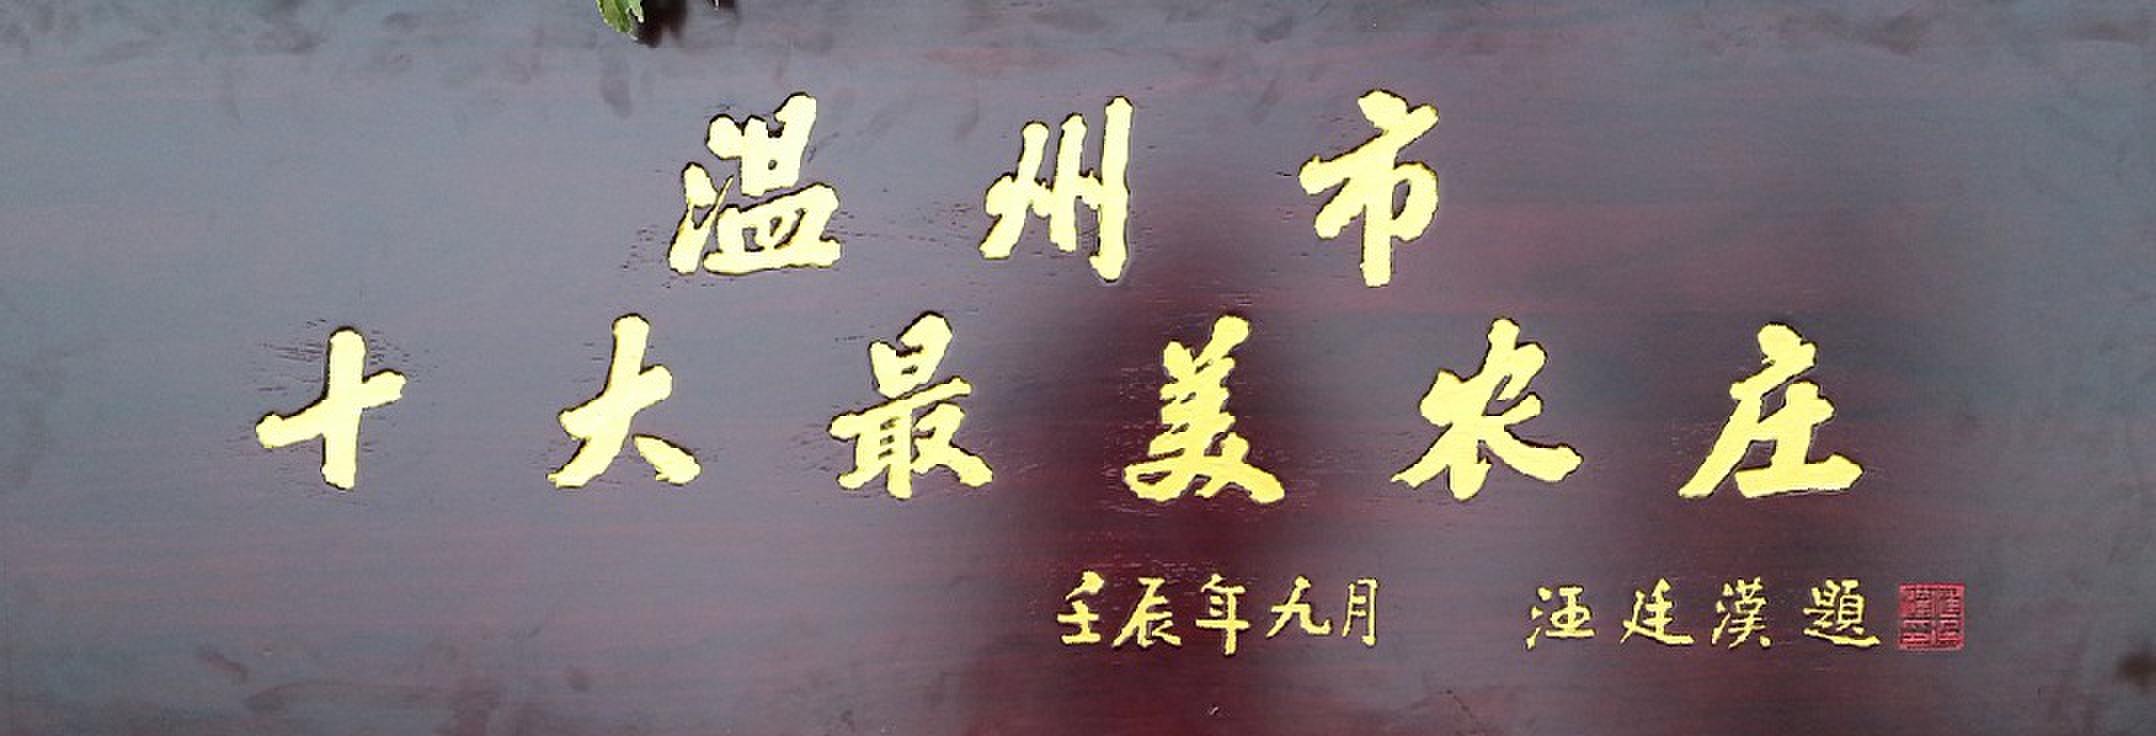 温州市
十大最美农庄
壬辰年九月 汪廷漢題